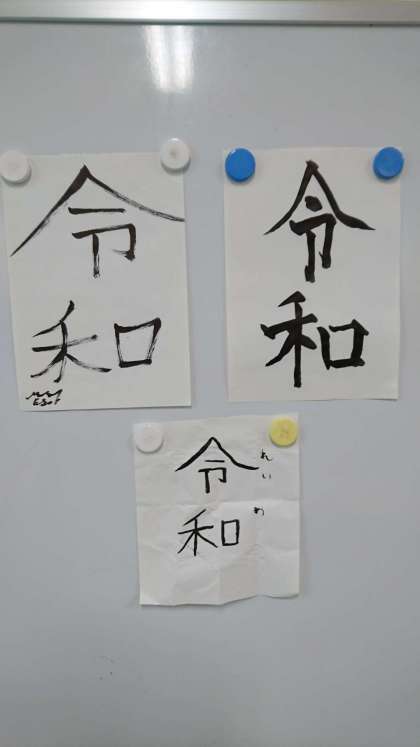 令
和
令
和
令
和
れい
わ